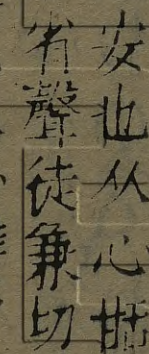 安也从心甛
省聲徒兼切